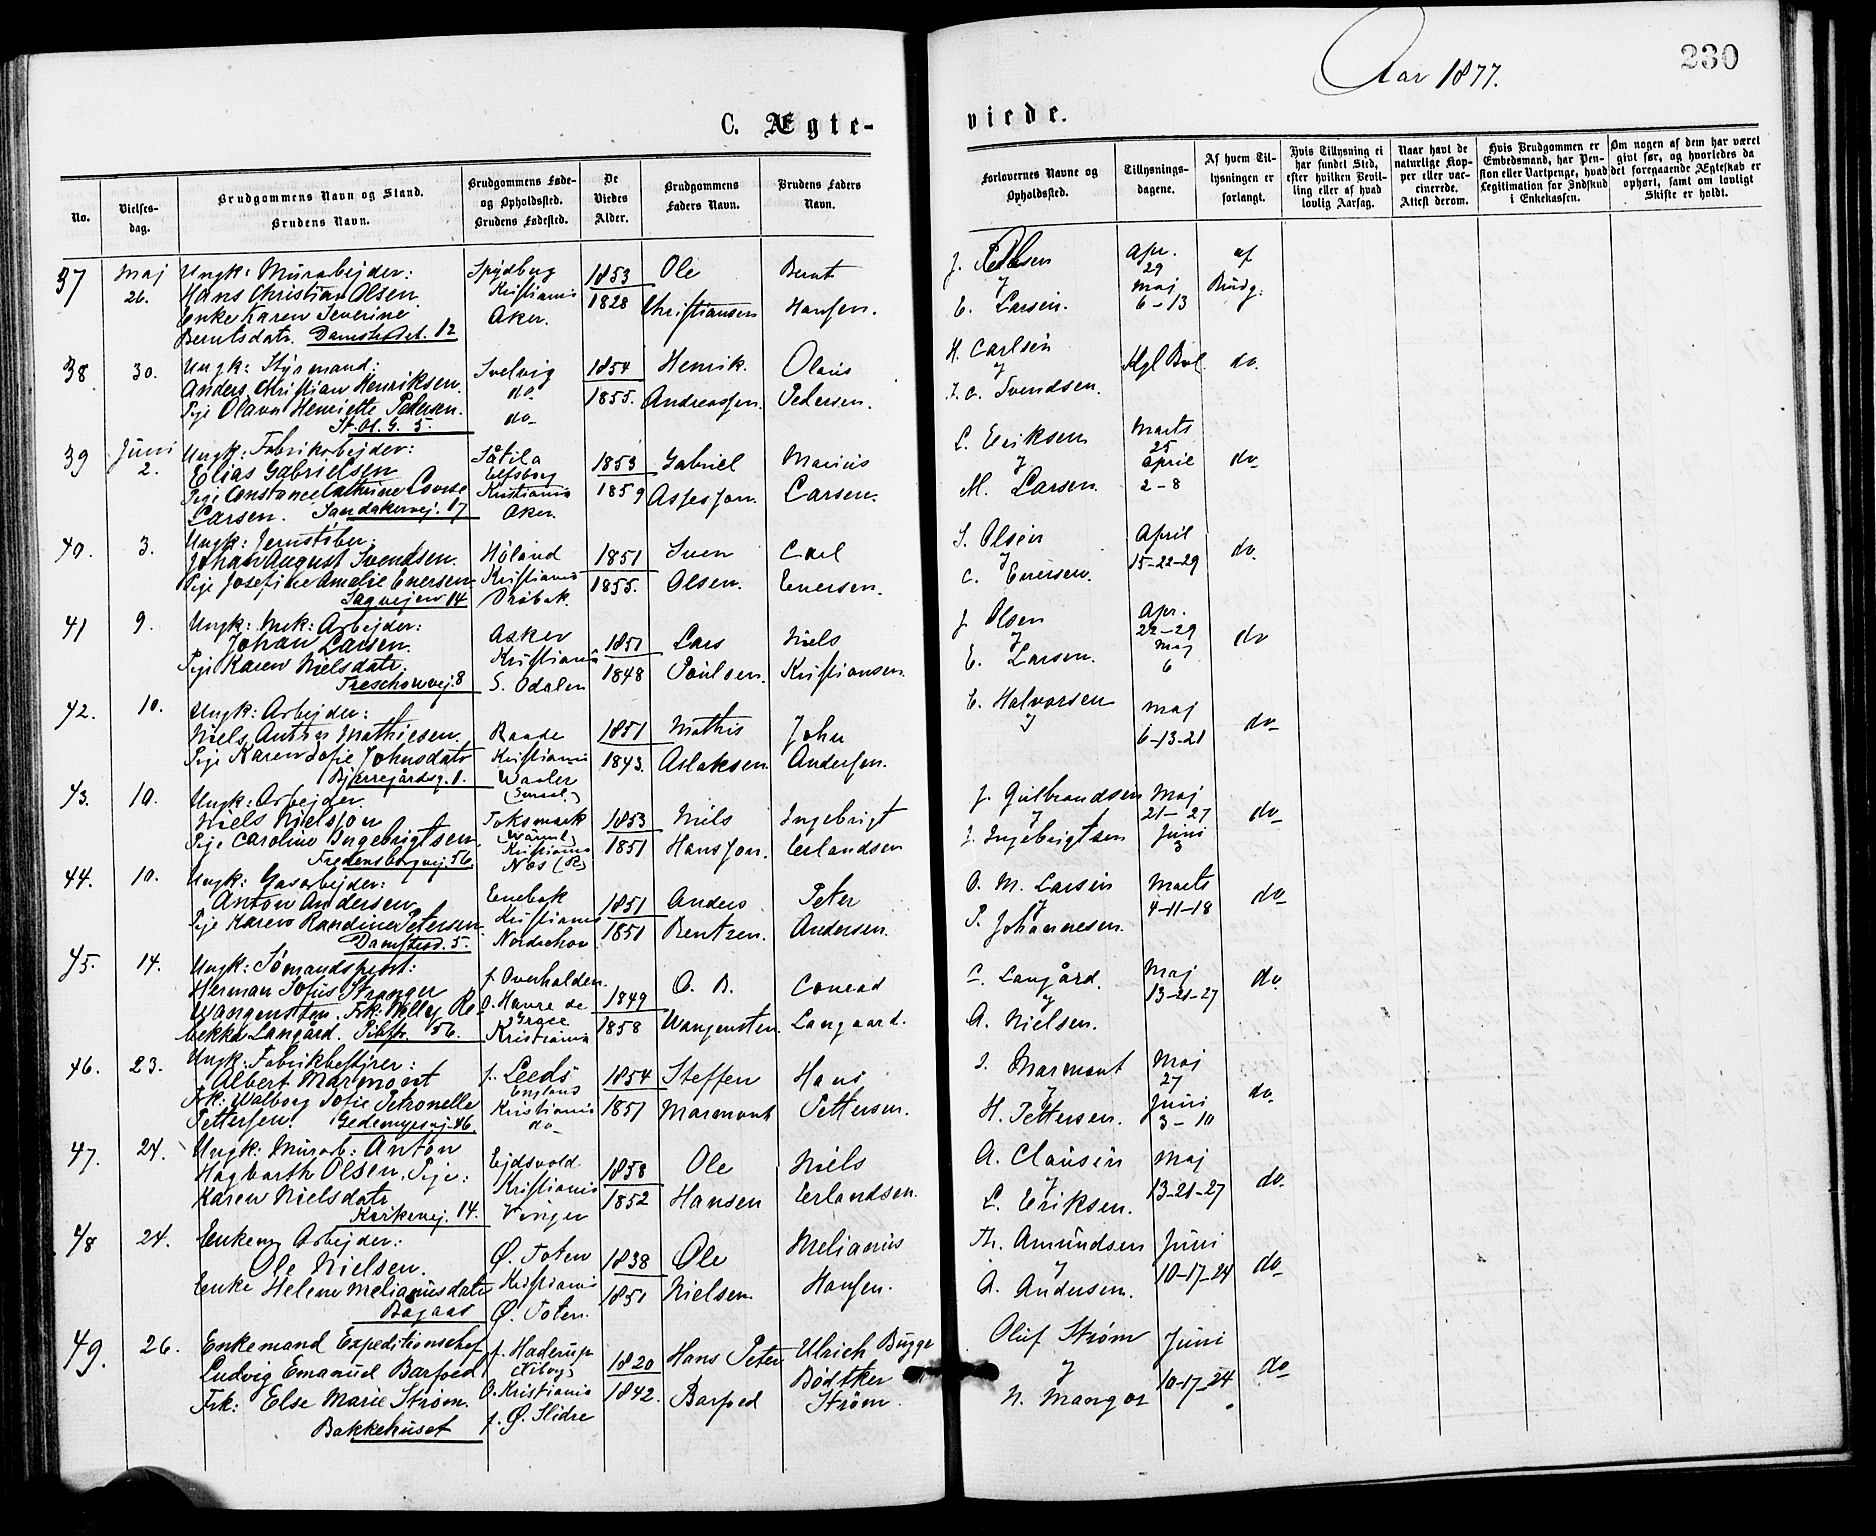 Aar 1877.
230
C. Ægte-
viede.
No.
Vielses-
dag.
Brudgommens Navn og Stand.
Brudens Navn.
Brudgommens Føde-
og Opholdssted.
Brudens Fødested.
De
Viedes
Alder.
Brudgommens
Faders Navn.
Brudens Faders
Navn.
Forlovernes Navne og
Opholdssted.
Tillysnings-
dagene.
Af hvem Til-
lysningen er
forlangt.
Hvis Tillysning ei
har fundet Sted,
efter hvilken Bevil-
ling eller af hvad
lovlig Aarsag.
Naar havt de
naturlige Kop-
per eller vac-
cinerede.
Attest derom.
Hvis Brudgommen er
Embedsmand, har Pen-
sion eller Vartpenge, hvad
Legitimation for Indskud
i Enkekassen.
Om nogen af dem har været
givt før, og hvorledes da
det foregaaende Ægteskab er
ophørt, samt om lovligt
Skifte er holdt.
37 Maj 26. Ungk: Murarbejder: Spydberg 1853 Ole Bernt J. Olsen Apr. 29 af
Hans Christian Olsen. Kristiania 1828 Christiansen Hansen. E. Larsen. Maj 6-13 Brudg:
Enke Karen Severine Aker.
Berntsdatr. Damstredet. 12
38 30. Ungk: Styrmand: Svelvig 1854 Henrik Olaus H. Carlsen Kgl Bvl. do.
Anders Christian Henriksen. do. 1855. Andreassen. Pedersen. J. C. Svendsen.
Pige Olava Henriette Pedersen. do-
St. Ol. G. 5.
39 Juni 2. Ungk: Fabrikarbejder: Såtila 1853 Gabriel Marius L. Eriksen Marts 25 do-
Elias Gabrielsen Elfsborg 1859 Aspesson. Larsen. M. Larsen. April 2-8
Pige Constance Cathrine Lovise Kristiania
Larsen. Sandakervej. 17 Aker.
40. 3. Ungk: Jernstøber: Høland 1851 Sven Carl S. Olsen April do.
Johan August Svendsen. Kristiania 1855. Olsen. Eversen. C. Eversen. 15-22-29
Pige Josefine Amalie Eversen Drøbak.
Sagvejen 14
41 9. Ungk: Mek: Arbejder: Asker 1851 Lars Niels J. Olsen Apr. 22-29 do
Johan Larsen. Kristiania 1848 Poulsen. Kristiansen. E. Larsen. Maj 6
Pige Karen Nielsdatr. S. Odalen
Treschowvej. 8
42. 10. Ungk: Arbejder: Raade 1851 Mathis John E. Halvorsen Maj do-
Niels Anton Mathiesen. Kristiania 1843. Aslaksen. Andersen. 6-13-21
Pige Karen Sofie Johnsdatr Waaler
Bjerregårdsg. 1. (Smaal.)
43. 10. Ungk: Arbejder. Foksmark 1853 Niels Ingebrigt J. Gulbrandsen Maj 21-27 do-
Niels Nielsson (Wärml.) 1851 Hansson. Erlandsen J. Ingebrigtsen Juni 3
Pige Caroline Ingebrigtsen Kristiania
Fredensborgvej. 56. Nes (R)
44. 10. Ungk: Gasarbejder: Enebak 1851 Anders Peter O. M. Larsen Marts do-
Anton Andersen Kristiania 1851 Bentzen. Andersen. P. Johannesen. 4-11-18
Pige Karen Randine Petersen Nordrehov
Damstred. 5.
45. 14. Ungk: Sømandsprest: f. Overhalden. 1849 O. B. Conrad C. Langård. Maj do.
Herman Sofus Stranger O. Havre de 1858 Wangensten. Langaard. A. Nielsen. 13-21-27
Wangensten. Frk: Willy Re Grace
bekka Langård. Pilestr. 56. Kristiania
46. 23. Ungk: Fabrikbestyrer: f. Leeds 1854 Steffen Hans S. Marmont Maj 27 do-
Albert Marmont England 1851 Marmont Pettersen. H. Pettersen. Juni 3-10
Frk: Walborg Sofie Petronelle Kristiania
Pettersen. Gedemyrsvj. 46. do-
47. 24. Ungk: Murarb: Anton Ejdsvold. 1858 Ole Niels A. Clausen Maj do-
Hagbarth Olsen. Pige: Kristiania 1852 Hansen Erlandsen. L. Eriksen. 13-21-27
Karen Nielsdatr Vinger
Kirkevej. 14.
48 24. Enkem. Arbejder: Ø. Toten 1838 Ole Melianus Th. Amundsen Juni do-
Ole Nielsen. Kristiania 1851 Nielsen. Hansen. A. Andersen. 10-17-24
Enke Helene Melianusdatr Ø. Toten.
Bagaas
49. 26. Enkemand Expeditionschef f. Haderup 1820 Hans Peter Ulrich Bugge Oluf Strøm Juni do-
Ludvig Emanuel Barfoed (Viborg) 1842. Barfoed Bødtker N. Mangor 10-17-24
Frk: Else Marie Strøm. O. Kristiania Strøm.
Bakkehuset f. Ø. Slidre